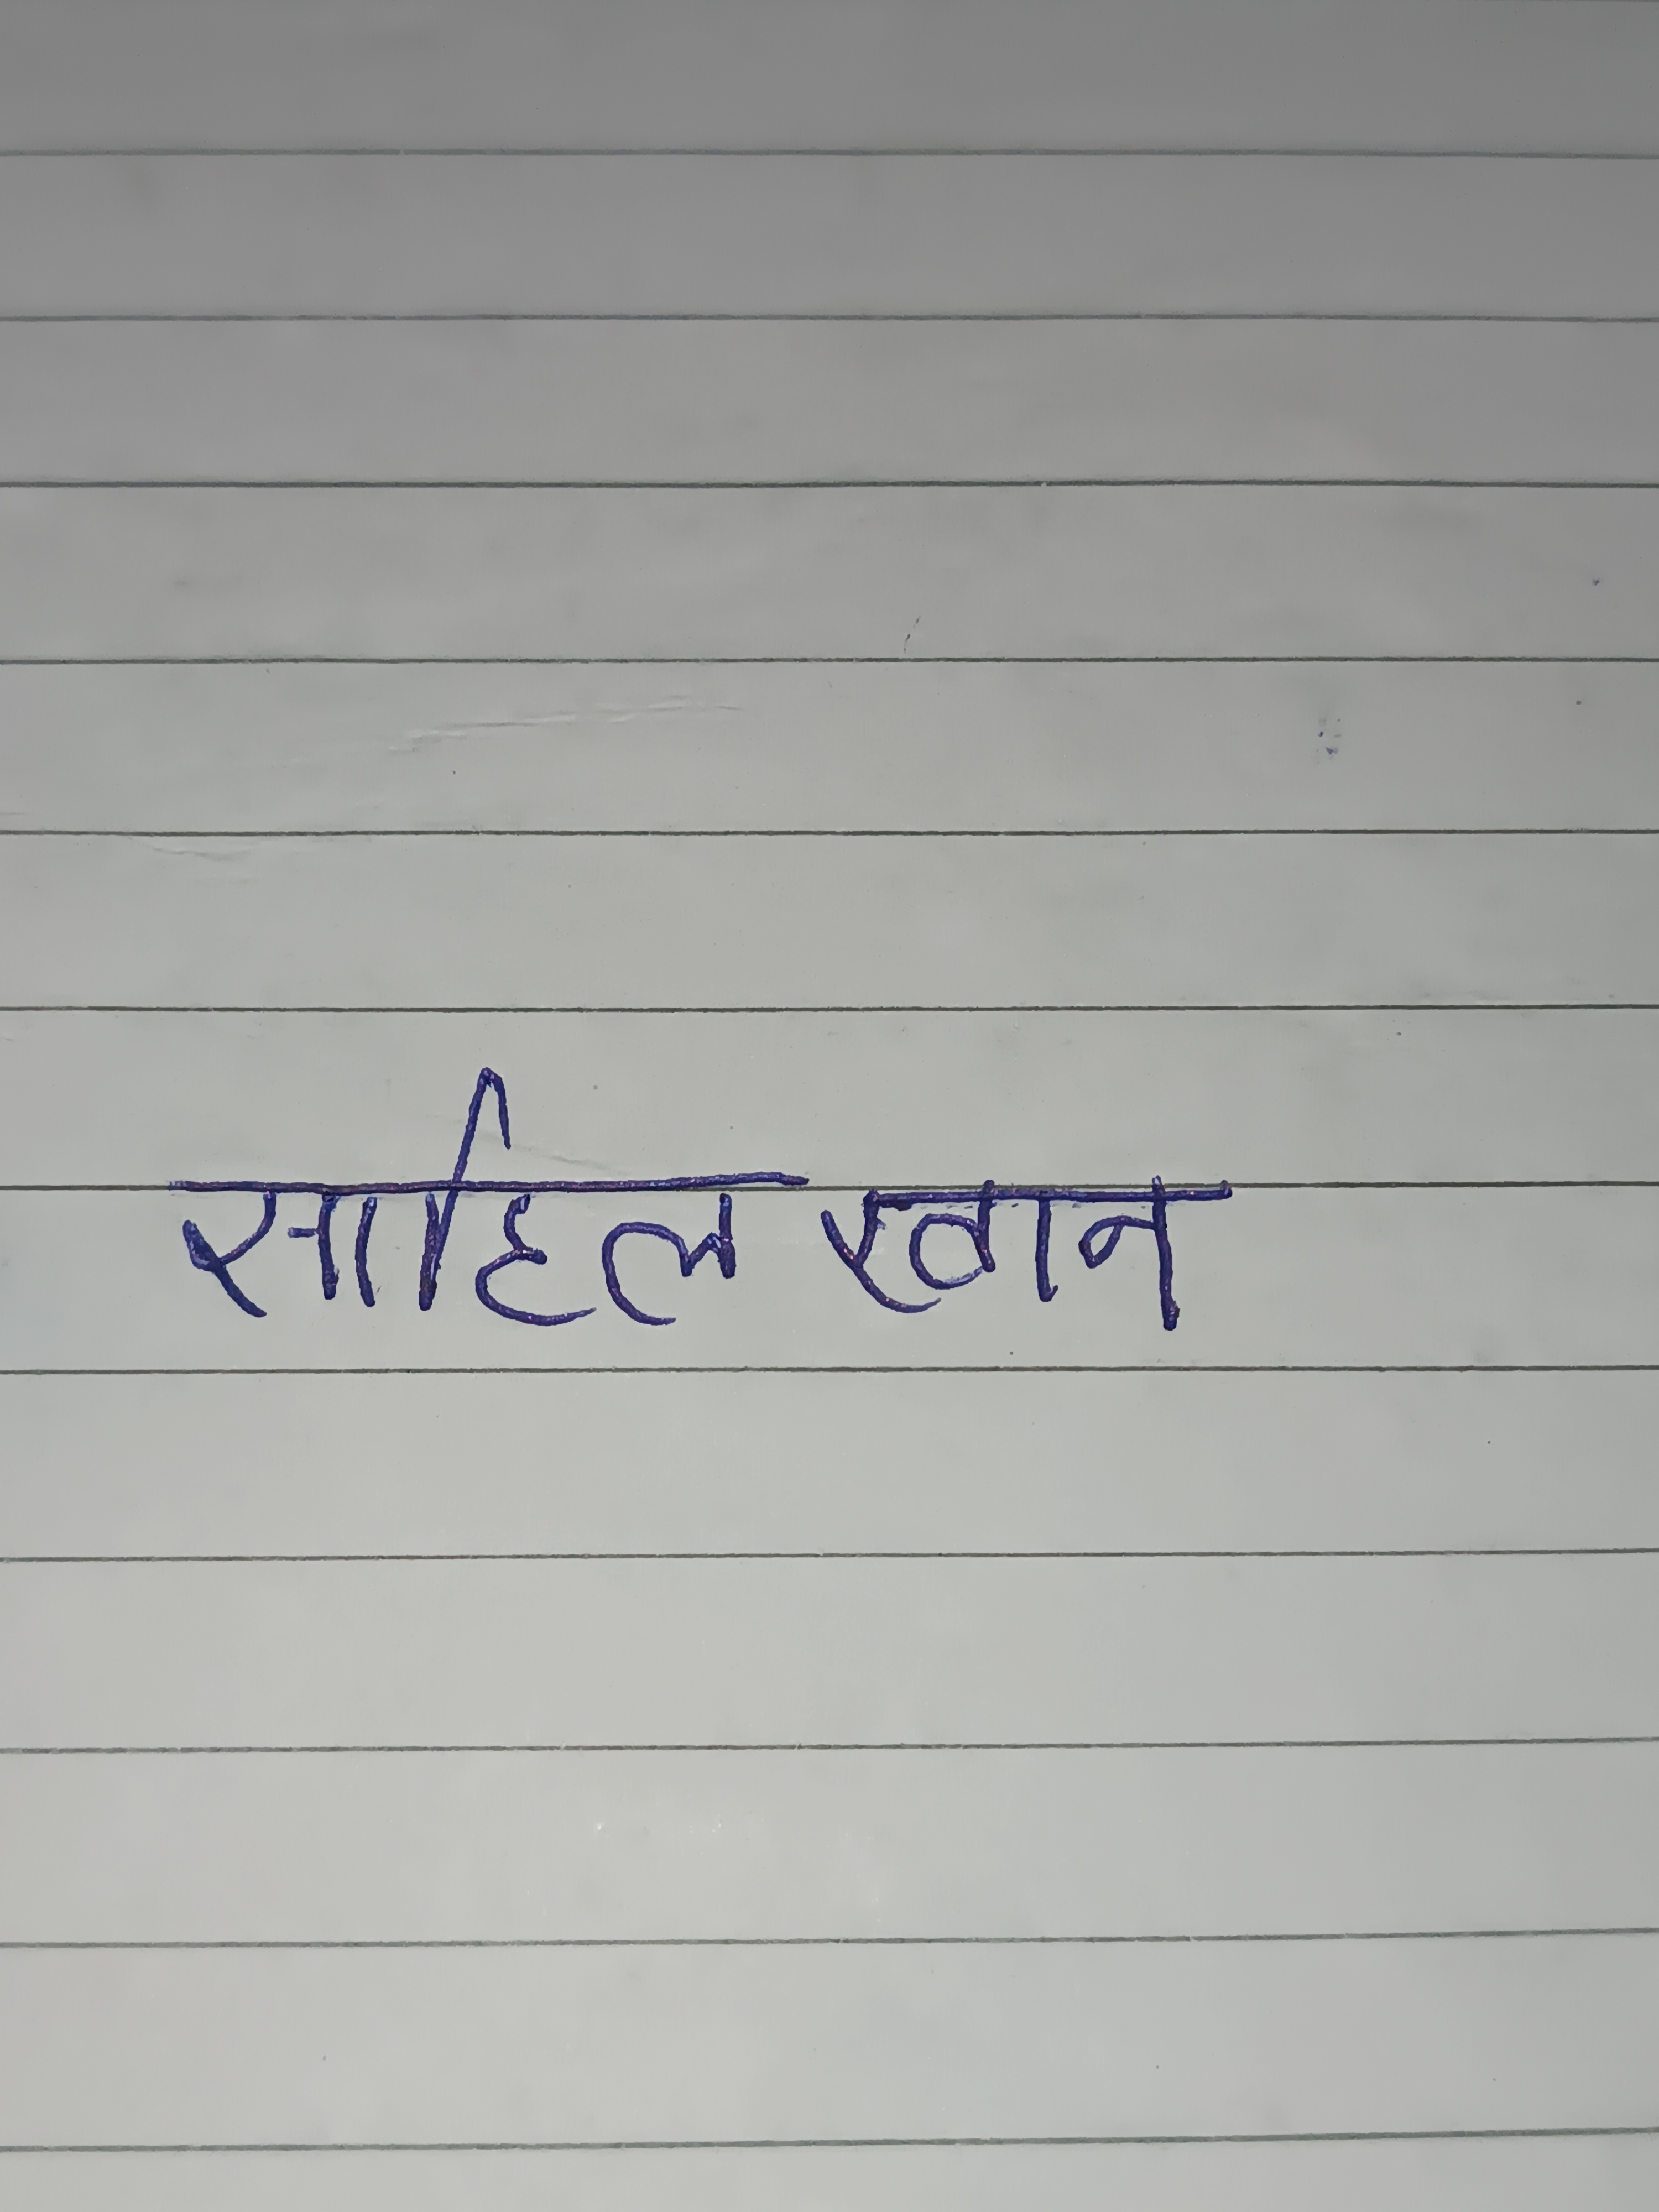 साहिल खान